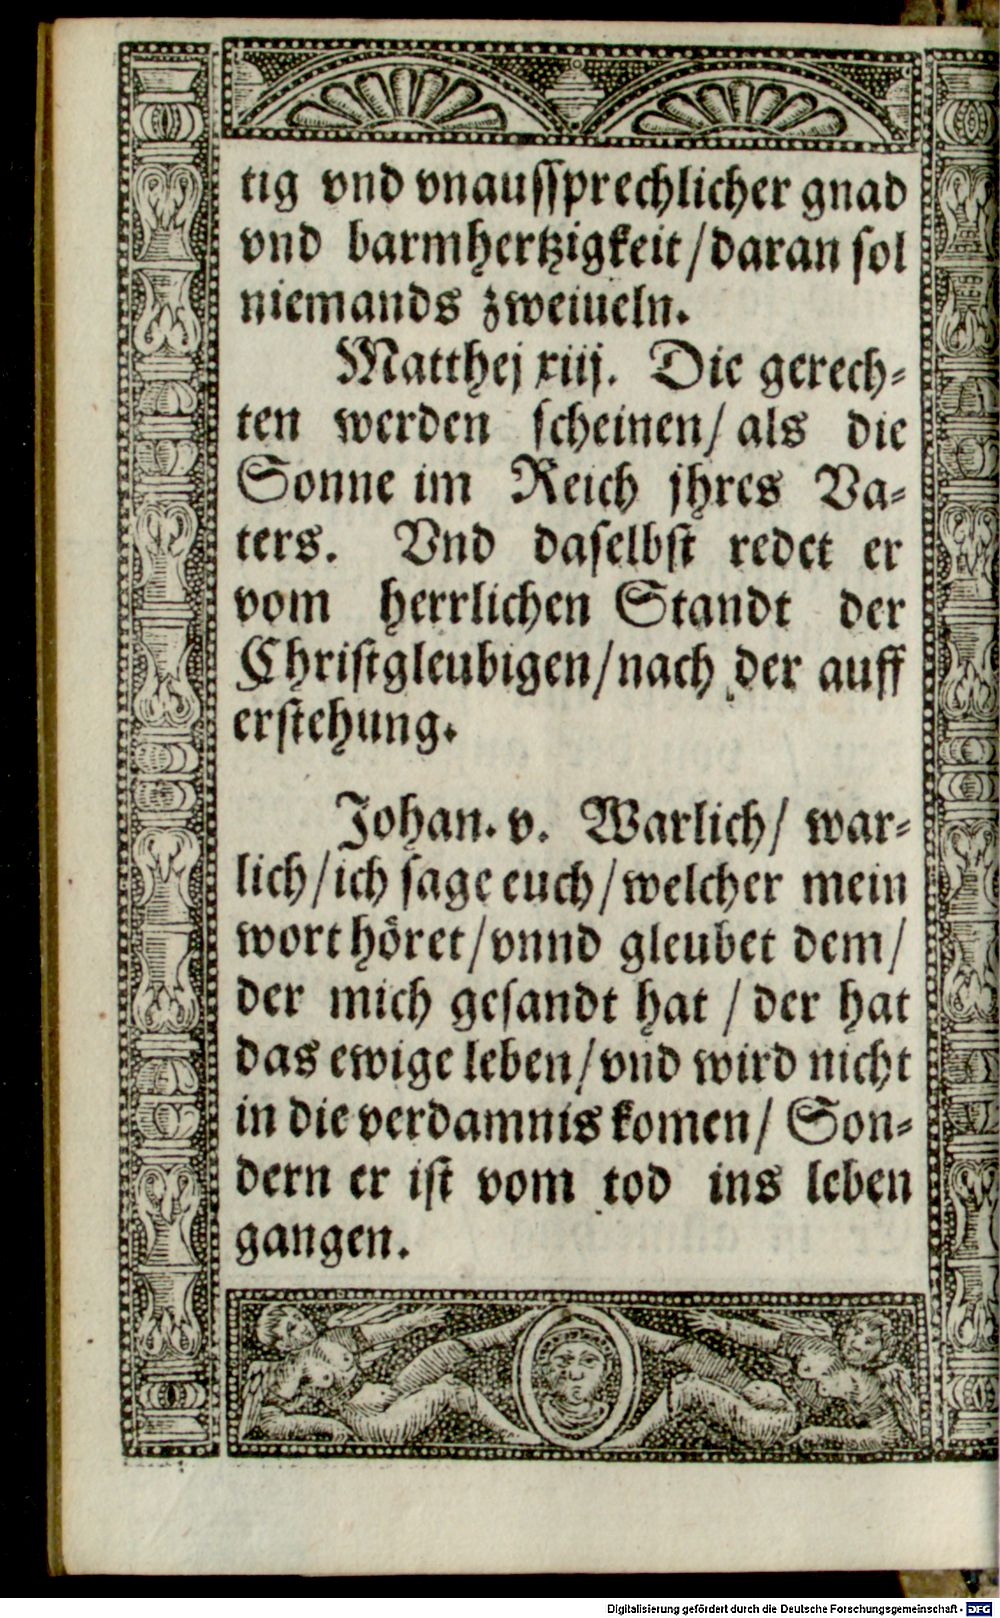 tig vnd vnausſprechlicher gnad
vnd barmhertzigkeit/daran ſol
niemands zweiueln.
Matthej xiij. Die gerech⸗
ten werden ſcheinen/ als die
Sonne im Reich jhres Va⸗
ters. Vnd daſelbſt redet er
vom herrlichen Standt der
Chriſtgleubigen/nach der auff
erſtehung.
Johan. v. Warlich/ war⸗
lich/ich ſage euch/welcher mein
wort höret/vnnd gleubet dem/
der mich geſandt hat / der hat
das ewige leben/vnd wird nicht
in die verdamnis komen/ Son⸗
dern er iſt vom tod ins leben
gangen.
Digitalisierung gefördert durch die Deutsche Forschungsgemeinschaft - DFG